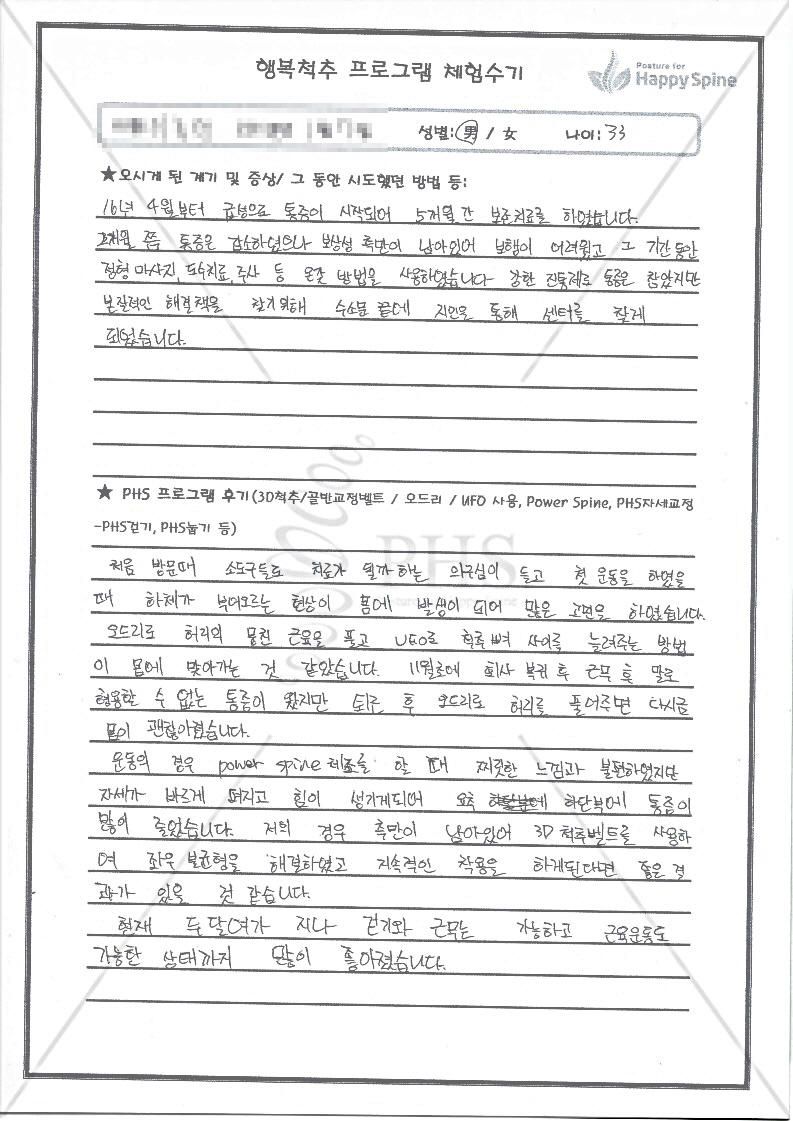 행복척추 프로그램 체험수기
Posture for
Happy Spine
성별: 男 / 女 나이: 33
★오시게 된 계기 및 증상/ 그 동안 시도했던 방법 등:
16년 4월부터 급성으로 통증이 시작되어 5개월간 보존치료를 하였습니다.
2개월 쯤 통증은 감소하였으나 보상성 측만이 남아있어 보행이 어려웠고 그 기간동안
정형 마사지, 도수치료, 주사 등 온갖 방법을 사용하였습니다 강한 진통제로 통증은 참았지만
본질적인 해결책을 찾기위해 수소문 끝에 지인을 통해 센터를 찾게
되었습니다.
★ PHS 프로그램 후기(3D척추/골반교정벨트 / 오드리 / UFO 사용, Power Spine, PHS자세교정
-PHS걷기, PHS눕기 등)
PHS
처음 방문때 소도구들로 치료가 될까하는 의구심이 들고 첫 운동을 하였을
때 하체가 부어오르는 현상이 몸에 발생이 되어 많은 고민을 하였습니다.
오드리로 허리의 뭉친 근육을 풀고 UFO로 척추뼈 사이를 늘려주는 방법
이 몸에 맞아가는 것 같았습니다. 11월초에 회사 복귀 후 근무 후 말로
형용할 수 없는 통증이 왔지만 퇴근 후 오드리로 허리를 풀어주면 다시금
몸이 괜찮아졌습니다.
운동의 경우 power spine 체조를 할 때 찌릿한 느낌과 불편하였지만
자세가 바르게 펴지고 힘이 생기게되어 요추 하단부에 통증이
많이 줄었습니다. 저의 경우 측만이 남아있어 3D 척추벨트를 사용하
여 좌우 불균형을 해결하였고 지속적인 착용을 하게된다면 좋은 결
과가 있을 것 같습니다.
현재 두달여가 지나 걷기와 근무는 가능하고 근육운동도
가능한 상태까지 많이 좋아졌습니다.